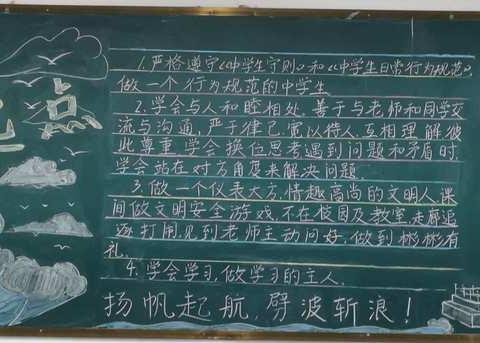 1.严格遵守《中学生守则》和《中学生日常行为规范》,
做一个行为规范的中学生
2.学会与人和睦相处,善于与老师和同学交
流与沟通,严于律己,宽以待人,互相理解彼
此尊重,学会换位思考遇到问题和矛盾时,
学会站在对方角度来解决问题.
3.做一个仪表大方,情趣高尚的文明人,课
间做文明安全游戏,不在校园及教室,走廊追
逐打闹,见到老师主动问好,做到彬彬有
礼.
4.学会学习,做学习的主人.
扬帆起航,劈波斩浪!
点